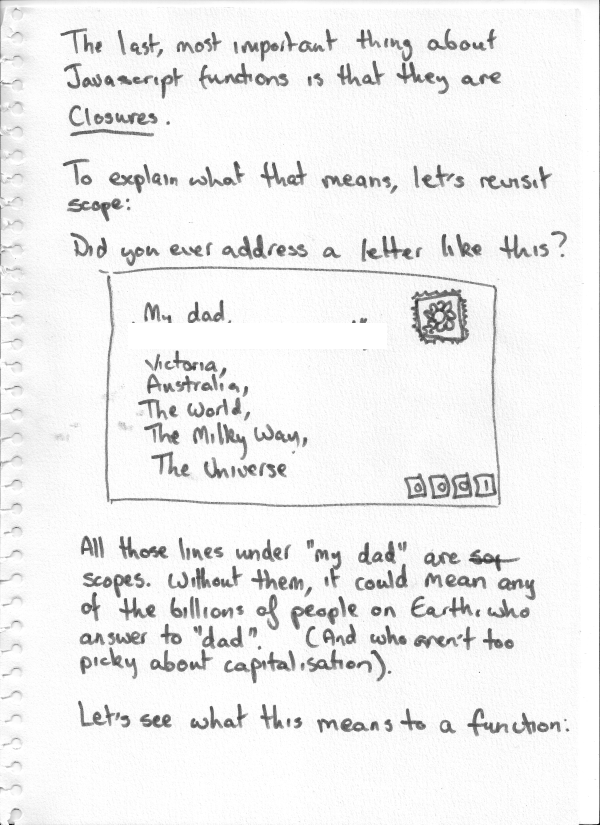 The last, most important thing about
Javascript functions is that they are
Closures.
To explain what that means, let's revisit
scope:
Did you ever address a letter like this?
My dad,
Victoria,
Australia,
The World,
The Milky Way,
The Universe
0001
All those lines under "my dad" are
scopes. Without them, it could mean any
of the billions of people on Earth, who
answer to "dad". (And who aren't too
picky about capitalisation).
Let's see what this means to a function: